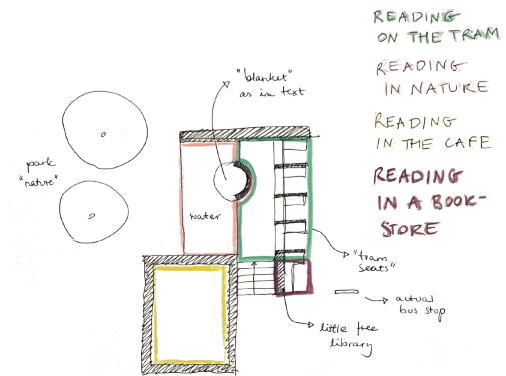 READING
ON THE TRAM
READING
IN NATURE
READING
IN THE CAFE
READING
IN A BOOK-
STORE
"blanket"
as in text
park
"nature"
water
"tram
seats"
actual
bus stop
little free
library